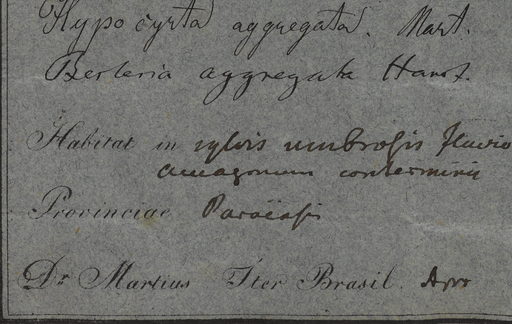 Hypocyrta aggregata. Mart.
Besleria aggregata Hanst.
Habitat in sylvis umbrosis fluvio
amazonum conterminis
Provinciae Paraënsis
Dr. Martius Iter Brasil.